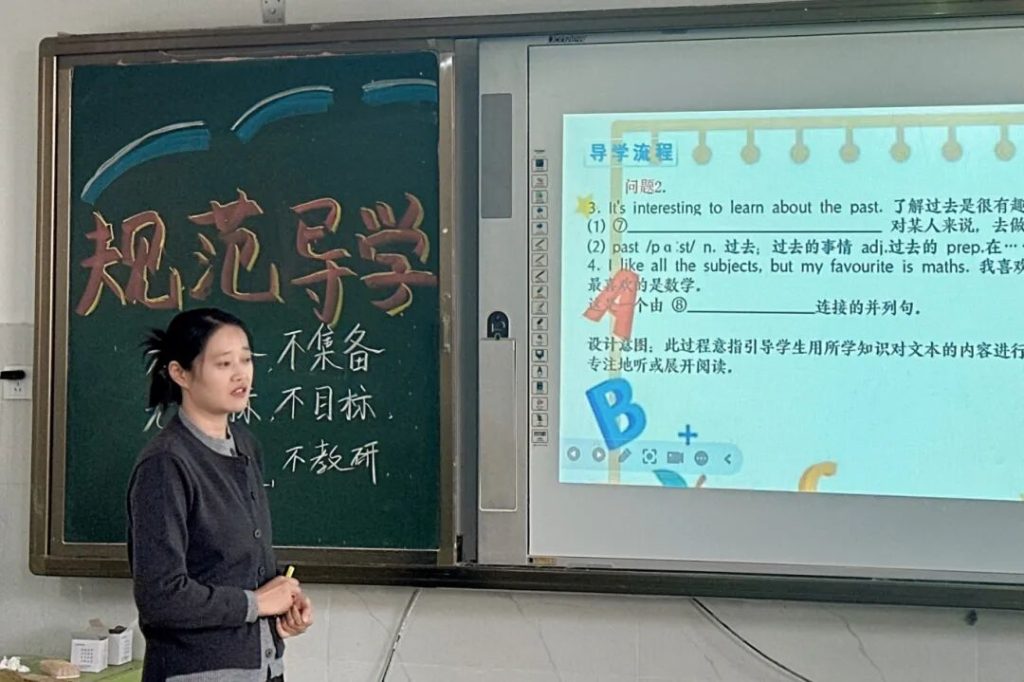 规范导学
,不集备
标,不目标.
不教研.
导学流程
问题2.
3. It's interesting to learn about the past. 了解过去是很有趣
(1) ⑦ 对某人来说, 去做
(2) past /pɑːst/ n. 过去; 过去的事情 adj.过去的 prep.在…
4. I like all the subjects, but my favourite is maths. 我喜欢
最喜欢的是数学。
这是一个由 ⑧ 连接的并列句。
设计意图: 此过程意指引导学生用所学知识对文本的内容进行
专注地听或展开阅读。
A
B